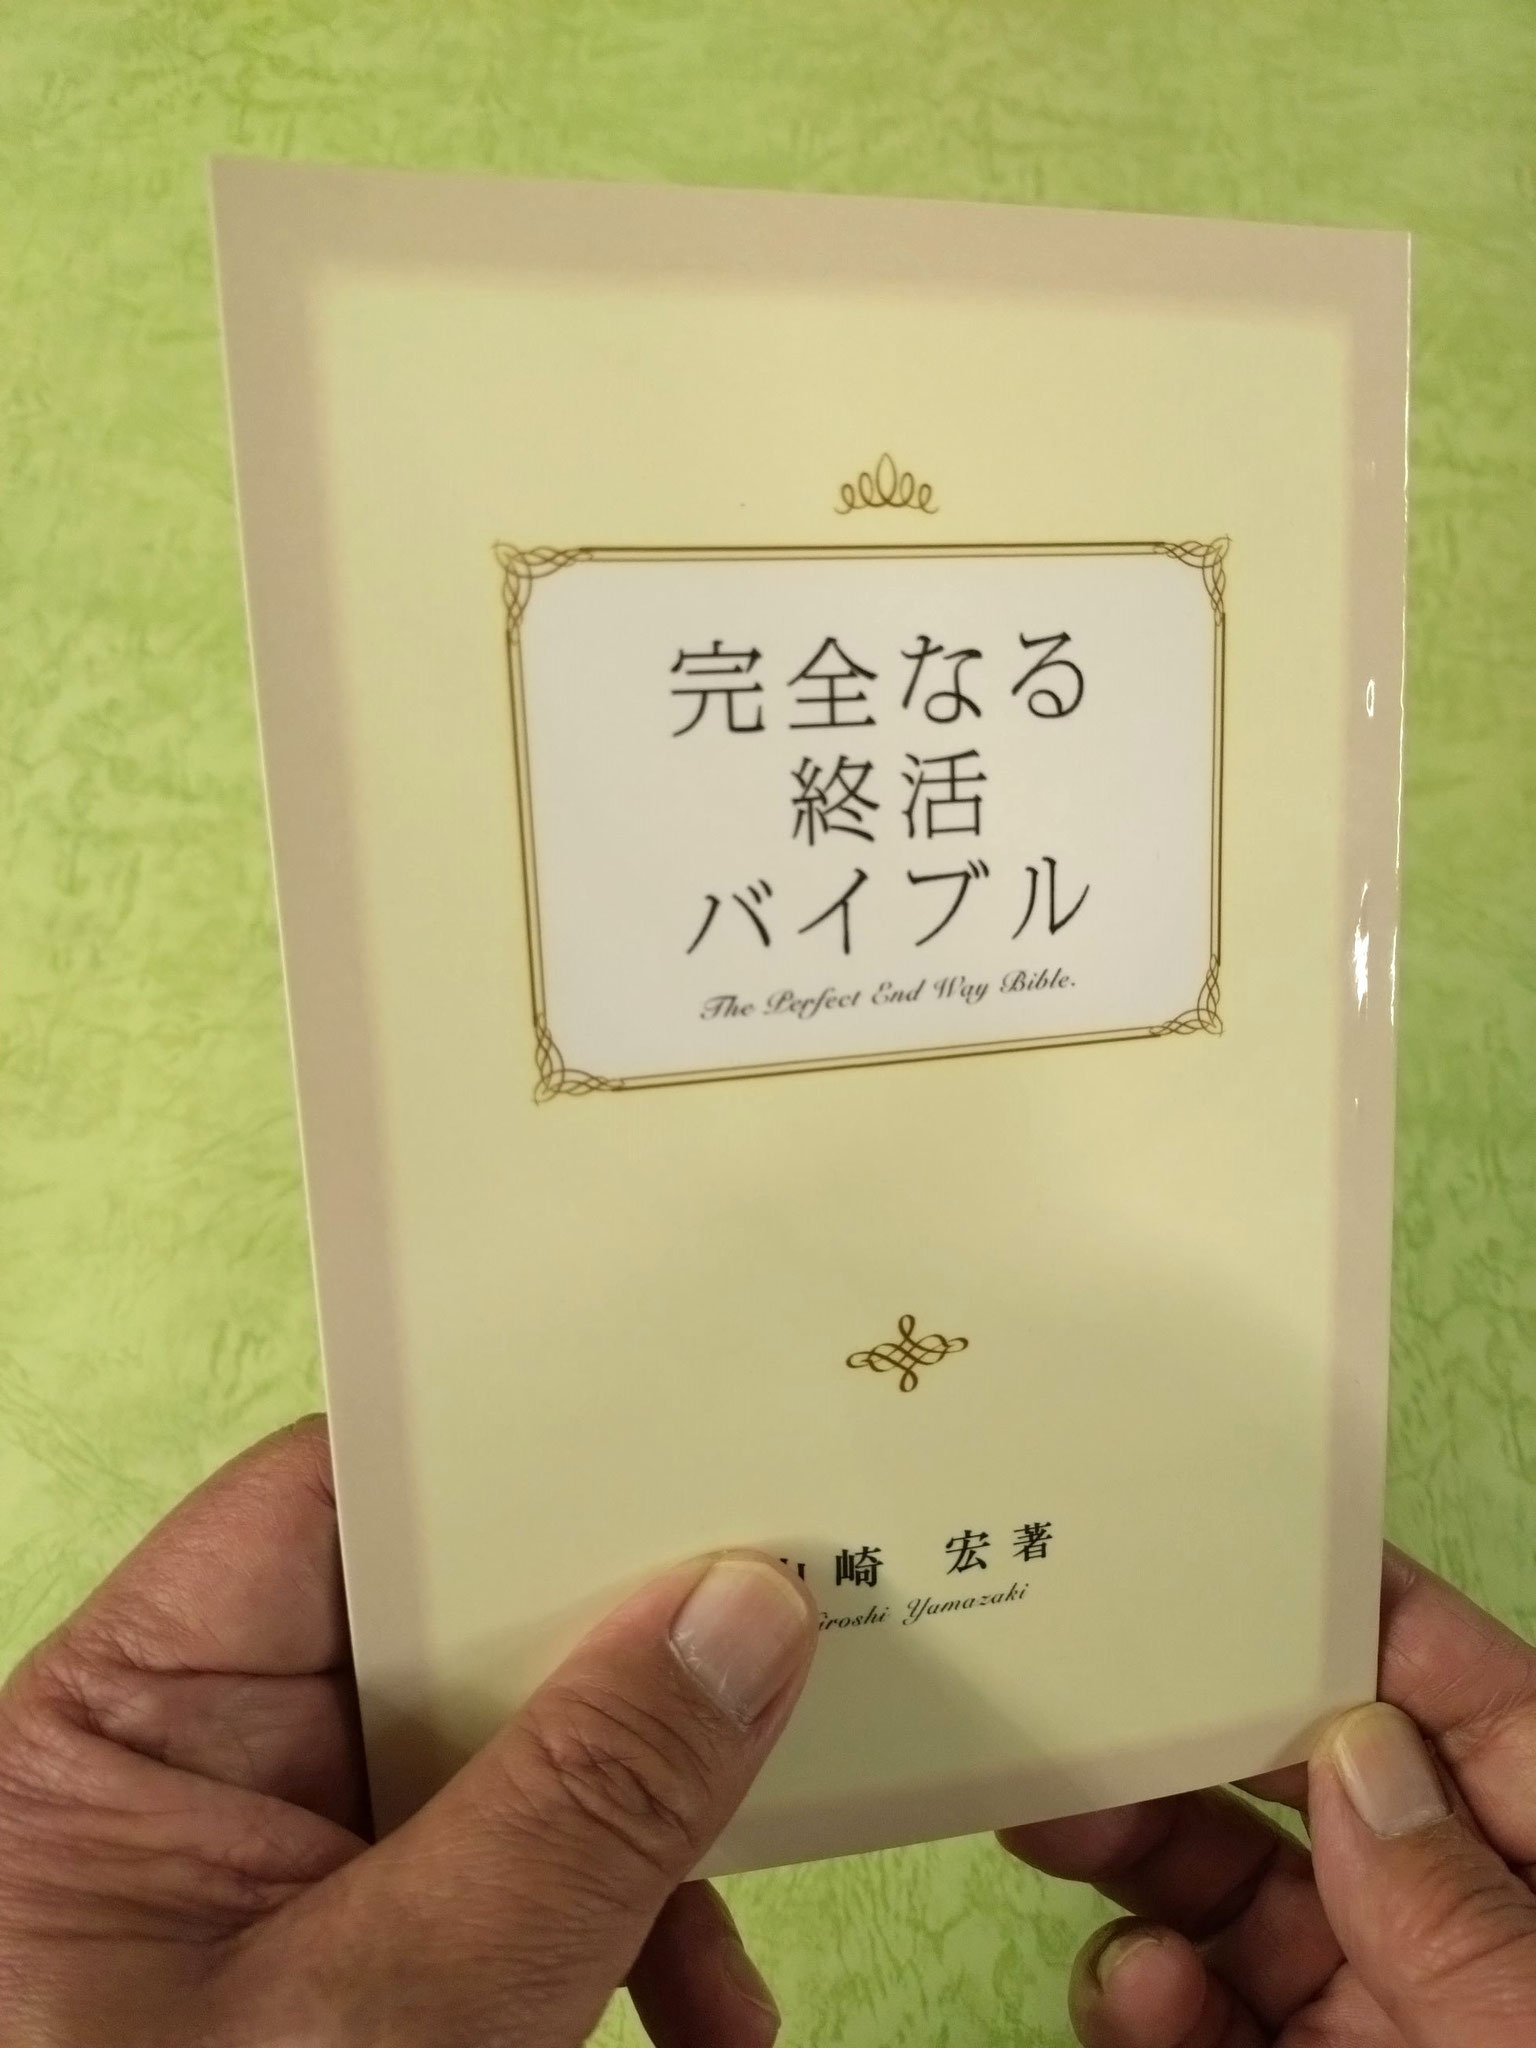 完全なる
終活
バイブル
The Perfect End Way Bible.
山崎 宏著
Hiroshi Yamazaki